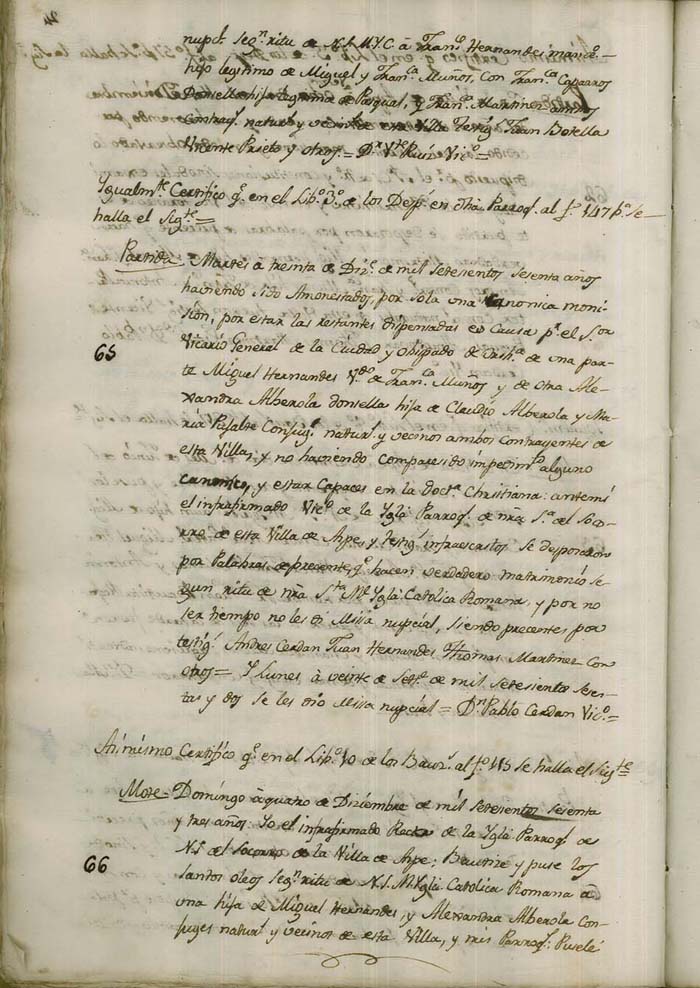 nupcl. Segn. ritu de N.S.M.Y.C. à Franco. Hernandes
hijo legitimo de Miguel y Franca. Muños, con Franca. Caparros
Donsella hija legitima de Pasqual, y Franca. Martines ambos
Contray. natural y vecinos en esta Villa Testigs. Juan Botella
Vicente Prieto y otros = Dr. Vte. Ruiz Vico. =
Ygualmte. Certifico qe. en el Libo. 3o. de los Desps. en dha. Parroql. al fo. 147 Po. se
halla el Sigte. =
Partida Martes à treinta de Dize. de mil setesientos sesenta años
haviendo sido Amonestados, por sola una Canonica moni-
sion, por estar las restantes dispensadas en Causa pr. el Sor.
65
Vicario General de la Ciudad y Obispado de Orihla. de una par-
te Miguel Hernandes Vdo. de Franca. Muños y de otra Ale-
xandra Alberola donsella hija de Claudio Alberola y Ma-
ria Pujalte Consugs. natural. y vecinos ambos contrayentes de
esta Villa, y no haviendo comparesido impedimto. alguno
canonico, y estar Capaces en la Docta. Christiana: antemi
el infrafirmado Vico. de la Ygla. Parroql. de nra. Sa. del Soco-
rro de esta Villa de Aspe, y testigs. infraescritos se desposaron
por Palabras de precente, qe. hacen verdadero matrimonio se-
gun ritu de nra. Sta. Me. Ygla. Catolica Romana, y por no
ser tiempo no les di Missa nupcial, siendo precentes por
testigs. Andres Cerdan Juan Hernandes Thomas Martines Con
otros = Y Lunes à veinte de Sete. de mil setesientos sesen-
ta y dos se les dio Missa nupcial = Dn. Pablo Cerdan Vico. =
Asimismo Certifico qe. en el Libo. 10 de los Bauts. al fo. 113 se halla el Sigte. =
More = Domingo à quatro de Diziembre de mil setesientos sesenta
y tres años: Yo el infrafirmado Rector de la Ygla. Parroql. de
N.S. del Socorro de la Villa de Aspe; Bautize y puse los
66
santos oleos Segn. ritu de N.S.M. Ygla. Catolica Romana à
una hija de Miguel Hernandes, y Alexandra Alberola Con-
juges natural. y vecinos de esta Villa, y mis Parroqs. Pusele